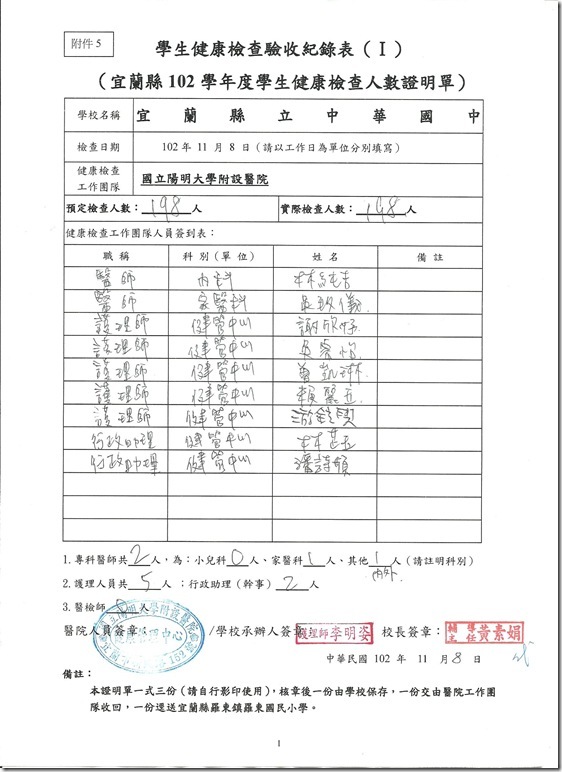 附件 5
學生健康檢查驗收紀錄表（I）
（宜蘭縣 102 學年度學生健康檢查人數證明單）
學校名稱 宜蘭縣立中華國中
檢查日期 102 年 11 月 8 日（請以工作日為單位分別填寫）
健康檢查工作團隊 國立陽明大學附設醫院
預定檢查人數：198人 實際檢查人數：198人
健康檢查工作團隊人員簽到表：
職稱 科別（單位） 姓名 備註
醫師 內科 林純吉
醫師 家醫科
護理師 健管中心 謝欣妤
護理師 健管中心
護理師 健管中心 曾凱琳
護理師 健管中心 賴麗五
護理師 健管中心
行政助理 健管中心 林甚五
行政助理 健管中心 潘詩頻
1.專科醫師共2人，為：小兒科0人、家醫科1人、其他1人（請註明科別）
2.護理人員共5人；行政助理（幹事）2人
3.醫檢師0人
醫院人員簽章 /學校承辦人簽章 護理師李明姿 校長簽章：輔導主任黃素娟
中華民國 102 年 11 月 8 日
備註：
本證明單一式三份（請自行影印使用），核章後一份由學校保存，一份交由醫院工作團
隊收回，一份逕送宜蘭縣羅東鎮羅東國民小學。
1